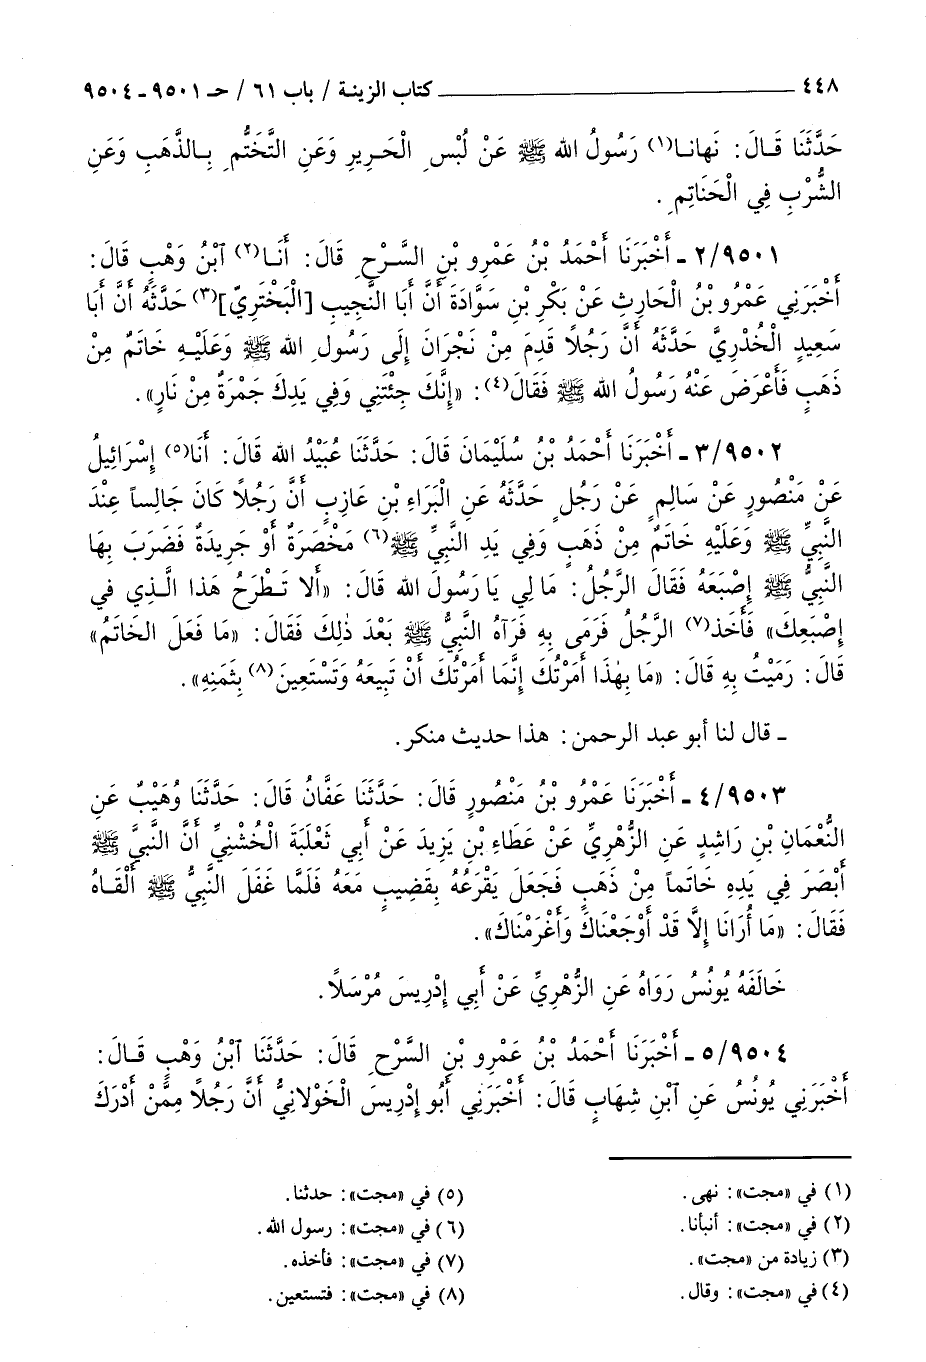 ٤٤٨ ــــــ كتاب الزينة / باب ٦١ / حـ ٩٥٠١ ـ ٩٥٠٤
حَدَّثَنَا قَالَ: نَهانا(١) رَسُولُ الله ﷺ عَنْ لُبْسِ الْحَرِيرِ وَعَنِ التَّخَتُّمِ بِالذَّهَبِ وَعَنِ
الشُّرْبِ فِي الْحَنَاتِمِ.
٢/٩٥٠١ ـ أَخْبَرَنَا أَحْمَدُ بْنُ عَمْرِو بْنِ السَّرْحِ قَالَ: أَنَا(٢) ٱبْنُ وَهْبٍ قَالَ:
أَخْبَرَنِي عَمْرُو بْنُ الْحَارِثِ عَنْ بَكْرِ بْنِ سَوَّادَةَ أَنَّ أَبَا النَّجِيبِ [الْبَخْتَرِيَّ](٣) حَدَّثَهُ أَنَّ أَبَا
سَعِيدٍ الْخُدْرِيَّ حَدَّثَهُ أَنَّ رَجُلاً قَدِمَ مِنْ نَجْرَانَ إِلَى رَسُولِ الله ﷺ وَعَلَيْهِ خَاتَمٌ مِنْ
ذَهَبٍ فَأَعْرَضَ عَنْهُ رَسُولُ الله ﷺ فَقَالَ(٤): «إِنَّكَ جِئْتَنِي وَفِي يَدِكَ جَمْرَةٌ مِنْ نَارٍ».
٣/٩٥٠٢ ـ أَخْبَرَنَا أَحْمَدُ بْنُ سُلَيْمَانَ قَالَ: حَدَّثَنَا عُبَيْدُ الله قَالَ: أَنَا(٥) إِسْرَائِيلُ
عَنْ مَنْصُورٍ عَنْ سَالِمٍ عَنْ رَجُلٍ حَدَّثَهُ عَنِ الْبَرَاءِ بْنِ عَازِبٍ أَنَّ رَجُلاً كَانَ جَالِساً عِنْدَ
النَّبِيِّ ﷺ وَعَلَيْهِ خَاتَمٌ مِنْ ذَهَبٍ وَفِي يَدِ النَّبِيِّ ﷺ(٦) مَخْصَرَةٌ أَوْ جَرِيدَةٌ فَضَرَبَ بِهَا
النَّبِيُّ ﷺ إِصْبَعَهُ فَقَالَ الرَّجُلُ: مَا لِي يَا رَسُولَ الله قَالَ: «أَلا تَطْرَحُ هَذا الَّذِي في
إِصْبَعِكَ» فَأَخَذ(٧) الرَّجُلُ فَرَمَى بِهِ فَرَآهُ النَّبِيُّ ﷺ بَعْدَ ذٰلِكَ فَقَالَ: «مَا فَعَلَ الخَاتَمُ»
قَالَ: رَمَيْتُ بِهِ قَالَ: «مَا بِهٰذَا أَمَرْتُكَ إِنَّمَا أَمَرْتُكَ أَنْ تَبِيعَهُ وَتَسْتَعِينَ(٨) بِثَمَنِهِ».
ـ قال لنا أبو عبد الرحمن: هذا حديث منكر.
٤/٩٥٠٣ ـ أَخْبَرَنَا عَمْرُو بْنُ مَنْصُورٍ قَالَ: حَدَّثَنَا عَفَّانُ قَالَ: حَدَّثَنَا وُهَيْبٌ عَنِ
النُّعْمَانِ بْنِ رَاشِدٍ عَنِ الزُّهْرِيِّ عَنْ عَطَاءِ بْنِ يَزِيدَ عَنْ أَبِي ثَعْلَبَةَ الْخُشَنِيِّ أَنَّ النَّبِيَّ ﷺ
أَبْصَرَ فِي يَدِهِ خَاتَماً مِنْ ذَهَبٍ فَجَعَلَ يَقْرَعُهُ بِقَضِيبٍ مَعَهُ فَلَمَّا غَفَلَ النَّبِيُّ ﷺ أَلْقَاهُ
فَقَالَ: «مَا أُرَانَا إِلَّا قَدْ أَوْجَعْنَاكَ وَأَغْرَمْنَاكَ».
خَالَفَهُ يُونُسُ رَوَاهُ عَنِ الزُّهْرِيِّ عَنْ أَبِي إِدْرِيسَ مُرْسَلاً.
٥/٩٥٠٤ ـ أَخْبَرَنَا أَحْمَدُ بْنُ عَمْرِو بْنِ السَّرْحِ قَالَ: حَدَّثَنَا ٱبْنُ وَهْبٍ قَالَ:
أَخْبَرَنِي يُونُسُ عَنِ ٱبْنِ شِهَابٍ قَالَ: أَخْبَرَنِي أَبُو إِدْرِيسَ الْخَوْلَانِيُّ أَنَّ رَجُلاً مِمَّنْ أَدْرَكَ
(١) في «مجت»: نهى.
(٢) في «مجت»: أنبأنا.
(٣) زيادة من «مجت».
(٤) في «مجت»: وقال.
(٥) في «مجت»: حدثنا.
(٦) في «مجت»: رسول الله.
(٧) في «مجت»: فأخذه.
(٨) في «مجت»: فتستعين.